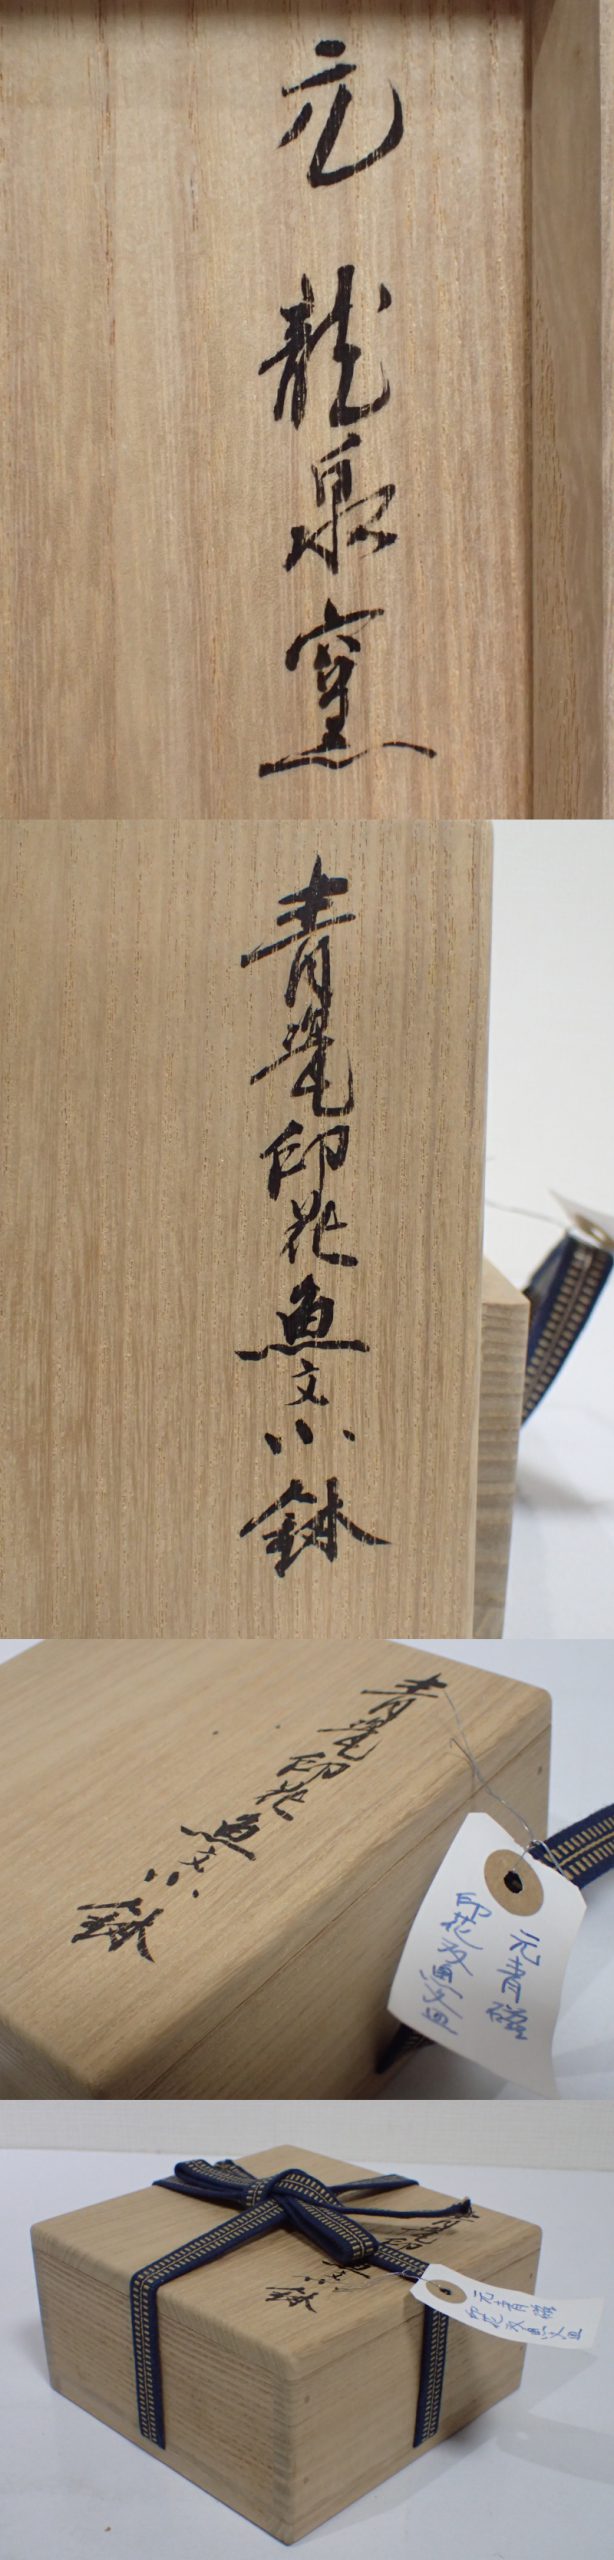 元 龍泉窯
青瓷印花魚文小鉢
青瓷印花魚文小鉢
元青磁
印花双魚文皿
青瓷印
魚小鉢
元青磁
印花双魚文皿